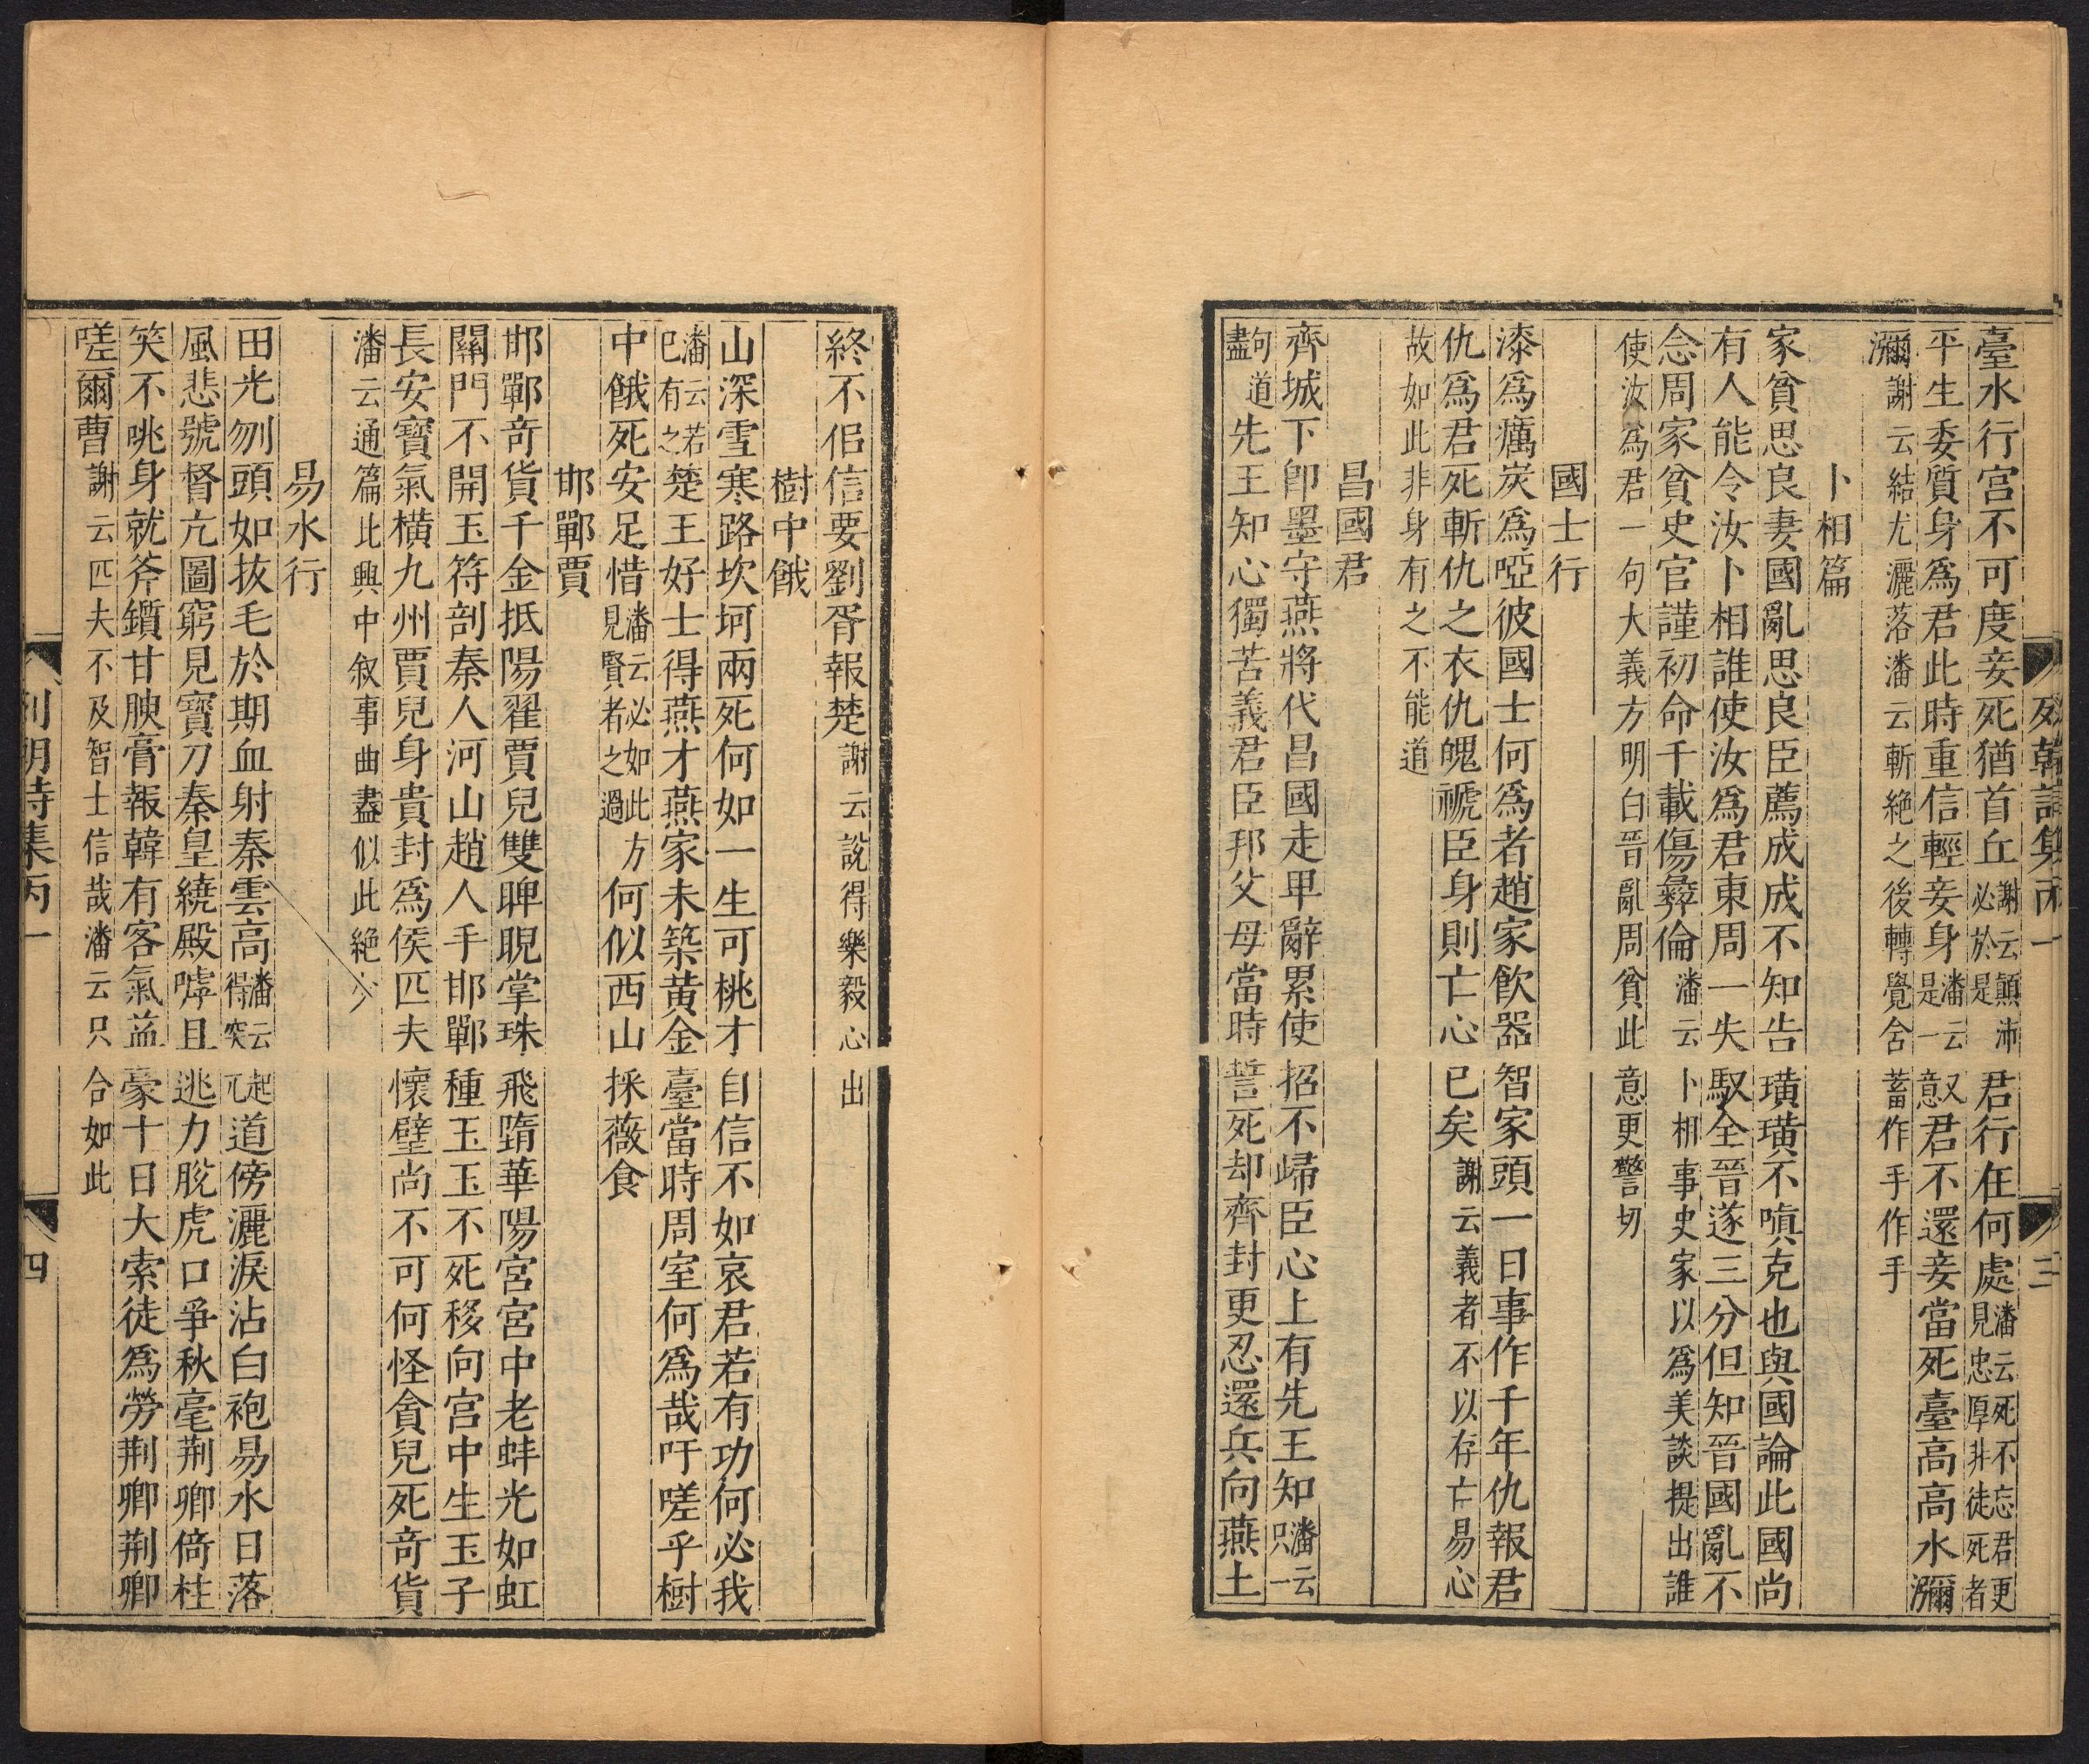 臺水行宮不可度妾死猶首丘謝云顛沛必於是君行在何處潘云死不忘君更見忠厚非徒死者
平生委質身爲君此時重信輕妾身潘云是一又意君不還妾當死臺高高水瀰
瀰謝云結尤灑落潘云斬絶之後轉覺舍蓄作手作手
卜相篇
家貧思良妻國亂思良臣薦成成不知告璜璜不嗔克也與國論此國尚
有人能令汝卜相誰使汝爲君東周一失馭全晉遂三分但知晉國亂不
念周家貧史官謹初命千載傷彝倫潘云卜相事史家以爲美談提出誰
使汝爲君一句大義方明白晉亂周貧此意更警切
國士行
漆爲癘炭爲啞彼國士何爲者趙家飲器智家頭一日事作千年仇報君
仇爲君死斬仇之衣仇魄褫臣身則亡心已矣謝云義者不以存亡易心
故如此非身有之不能道
昌國君
齊城下卽墨守燕將代昌國走卑辭累使招不歸臣心上有先王知潘云只一
句道盡先王知心獨苦義君臣邦父母當時誓死却齊封更忍還兵向燕土
死韓詩集丙一
三
終不侶信要劉胥報楚謝云說得樂毅心出
樹中餓
山深雪寒路坎坷兩死何如一生可桃才自信不如哀君若有功何必我
潘云若已有之楚王好士得燕才燕家未築黄金臺當時周室何爲哉吁嗟乎樹
中餓死安足惜潘云必如此方見賢者之過何似西山採薇食
邯鄲賈
邯鄲奇貨千金抵陽翟賈兒雙睥睨掌珠飛墮華陽宮宮中老蚌光如虹
關門不開玉符剖秦人河山趙人手邯鄲種玉玉不死移向宮中生玉子
長安寶氣橫九州賈兒身貴封爲侯匹夫懷璧尚不可何怪貪兒死奇貨
潘云通篇此興中叙事曲盡似此絶少
易水行
田光刎頭如拔毛於期血射秦雲高潘云得突起兀道傍灑淚沾白袍易水日落
風悲號督亢圖窮見寶刀秦皇繞殿嘑且逃力脫虎口爭秋毫荆卿倚柱
笑不咷身就斧鑕甘腴膏報韓有客氣益豪十日大索徒爲勞荆卿荆卿
嗟爾曹謝云匹夫不及智士信哉潘云只合如此
列朝詩集丙一
四